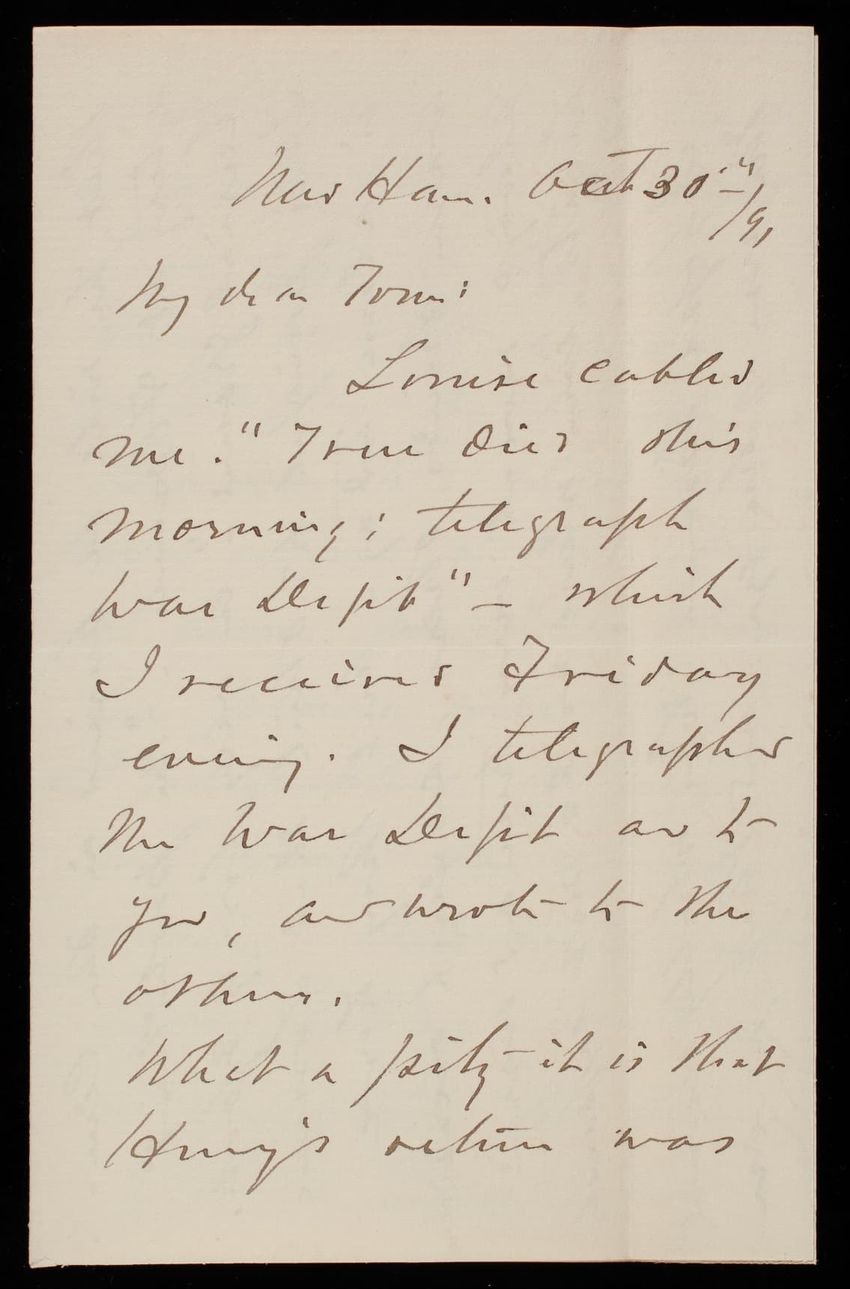 New Haven. Oct 30"/91
My dear Tom:
Louise cabled
me. "True died this
morning; telegraph
War Dep't" – which
I received Friday
evening. I telegraphed
the War Dep't and to
you, and wrote to the
others.
What a pity it is that
Henry's return was